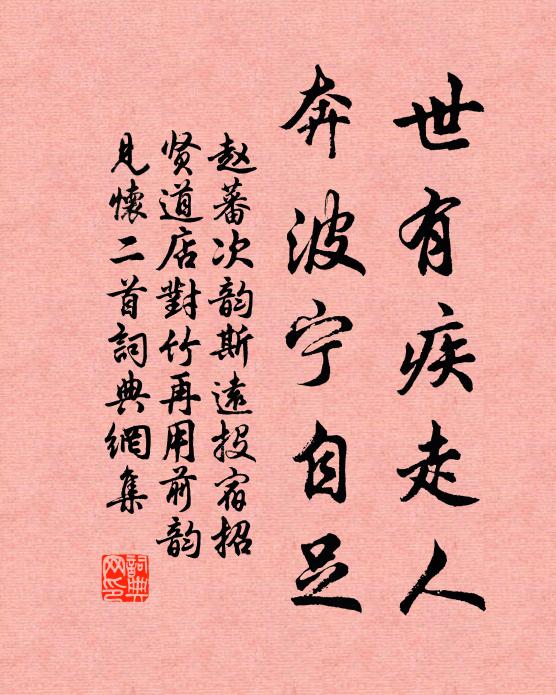 世有疾走人
奔波宁自足
赵蕃次韵斯遠投宿招
贤道店對竹再用前韵
見懷二首詞典網集
詞典网印